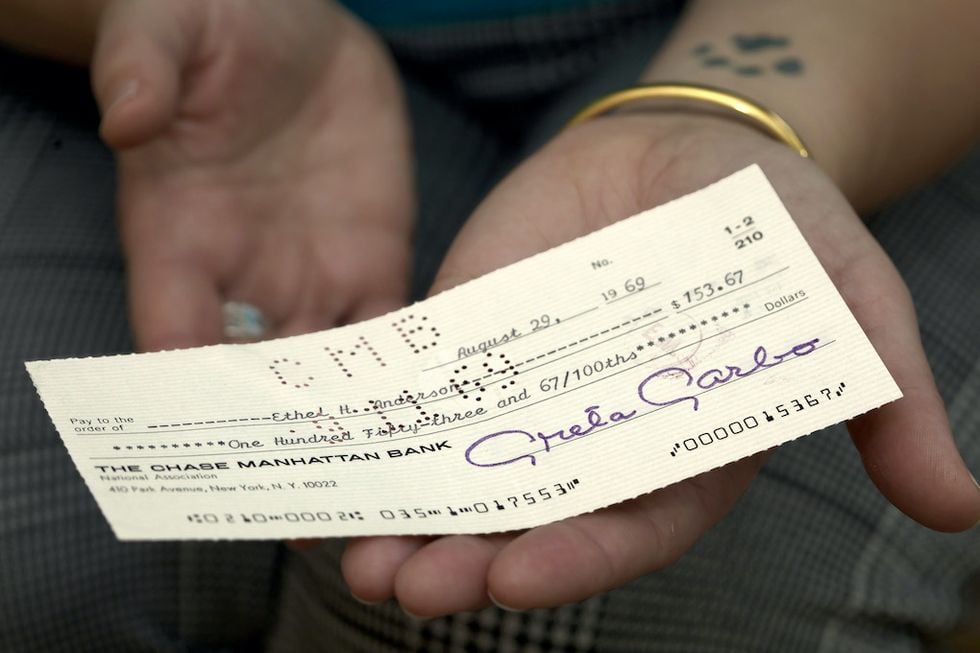 1-2
210
No.
August 29, 19 69
Pay to the
order of ------------Ethel H. Anderson-------------------- $ 153.67
**********One Hundred Fifty-three and 67/100ths*********** Dollars
CMB
THE CHASE MANHATTAN BANK
National Association
410 Park Avenue, New York, N.Y. 10022
Greta Garbo
⑆0210⑉0002⑆ 035⑉1⑉017553⑈ ⑈0000015367⑈